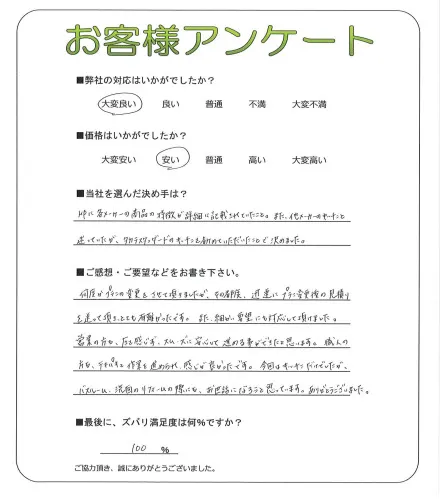 お客様アンケート
■弊社の対応はいかがでしたか?
大変良い 良い 普通 不満 大変不満
■価格はいかがでしたか?
大変安い 安い 普通 高い 大変高い
■当社を選んだ決め手は?
HPに各メーカーの商品の特徴が詳細に記載されていたこと。また、他メーカーのキッチンと
迷っていたが、タカラスタンダードのキッチンを勧めていただいたことで決めました。
■ご感想・ご要望などをお書き下さい。
何度かプランの変更をさせて頂きましたが、その都度、迅速にプラン変更後の見積り
を送って頂き、とても有難かったです。また、細かい要望にも対応して頂けました。
営業の方も、 スムーズに安心して進める事ができたと思います。職人の
方も、テキパキと作業を進められ、感じが良かったです。今回はキッチンだけでしたが、
バスルーム、洗面のリフォームの際にも、お世話になろうと思っています。ありがとうございました。
■最後に、ズバリ満足度は何%ですか?
100 %
ご協力頂き、誠にありがとうございました。